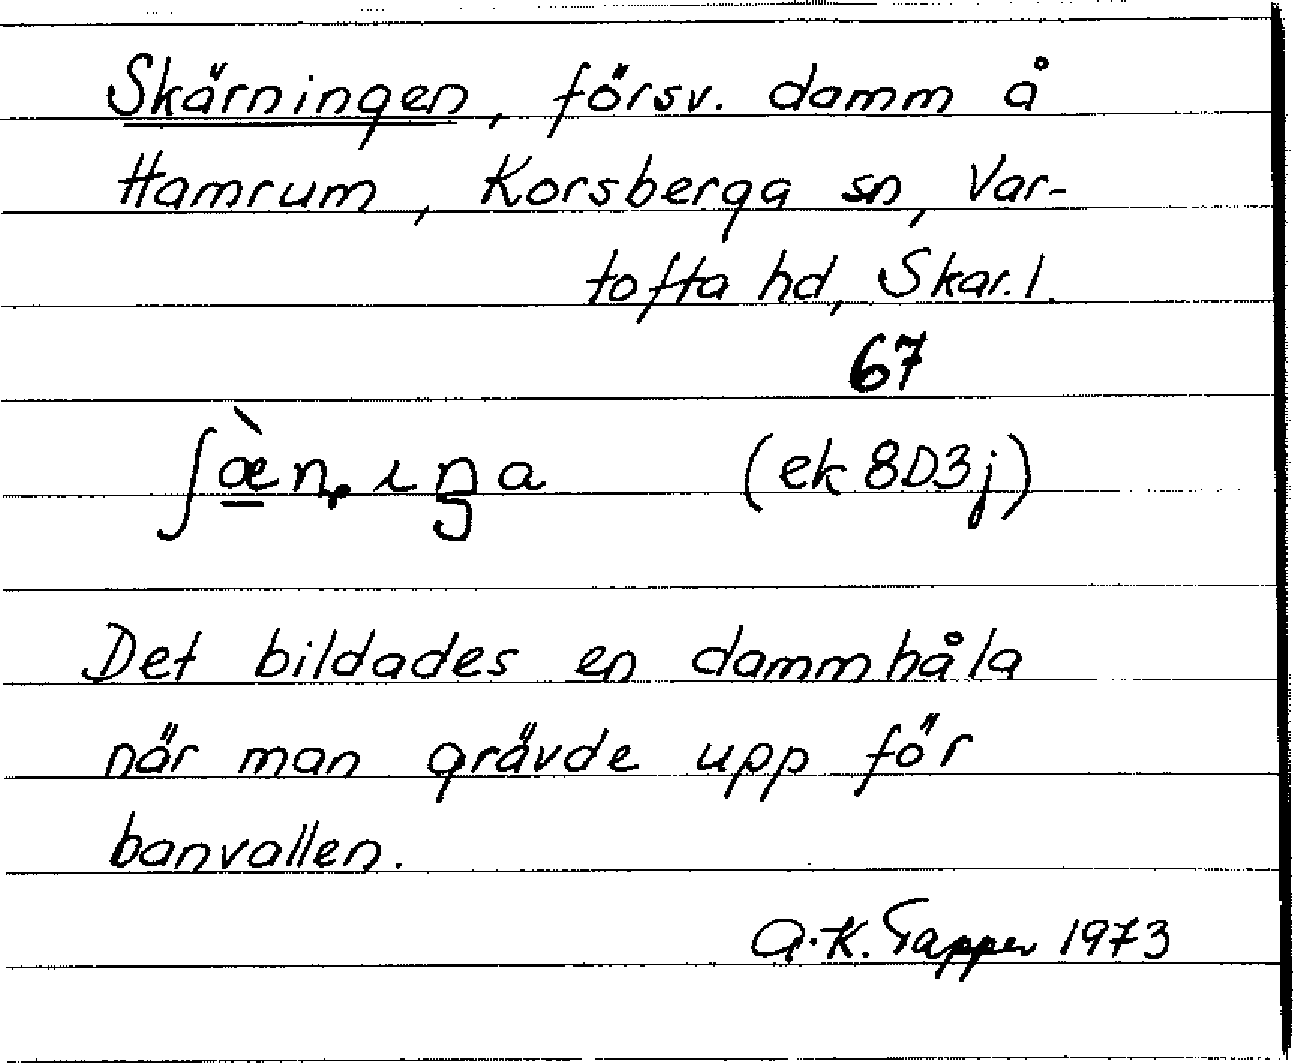 Skärningen, försv. damm å
Hamrum, Korsberga sn, Var-
tofta hd, Skar. l.
67
ʃæ̠̀nːɩŋa (ek 8D3j)
Det bildades en dammhåla
när man grävde upp för
banvallen.
A.-K. Tapper 1973